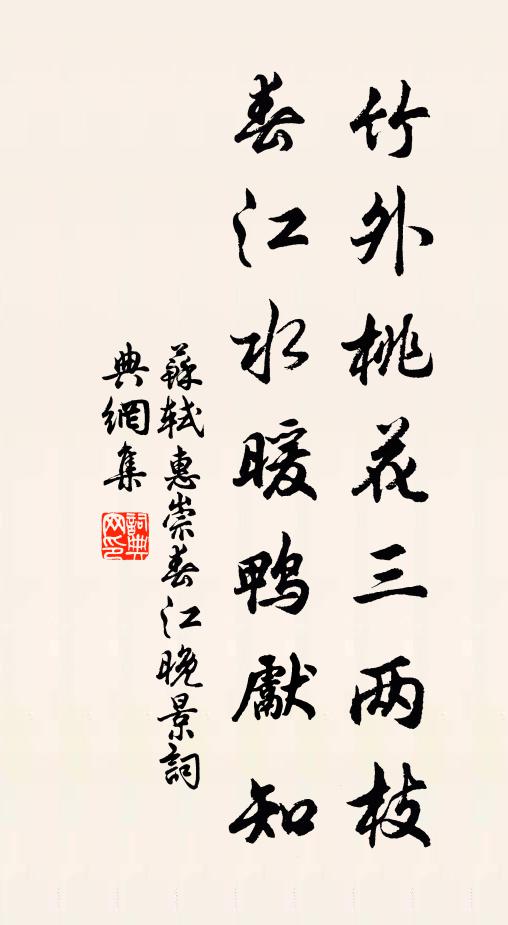 竹外桃花三两枝
春江水暖鴨獻知
蘇軾惠崇春江晚景詞
典網集
詞典
网印